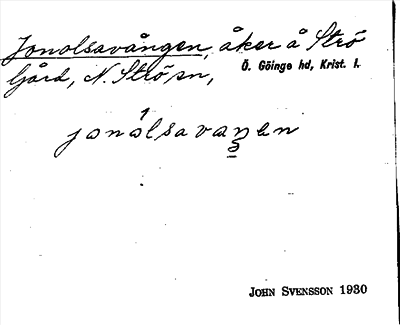 Jonolsavången, åker å Strö
Gård, N. Strö sn,
Ö. Göinge hd, Krist. l.
jonólsavaŋen
JOHN SVENSSON 1930